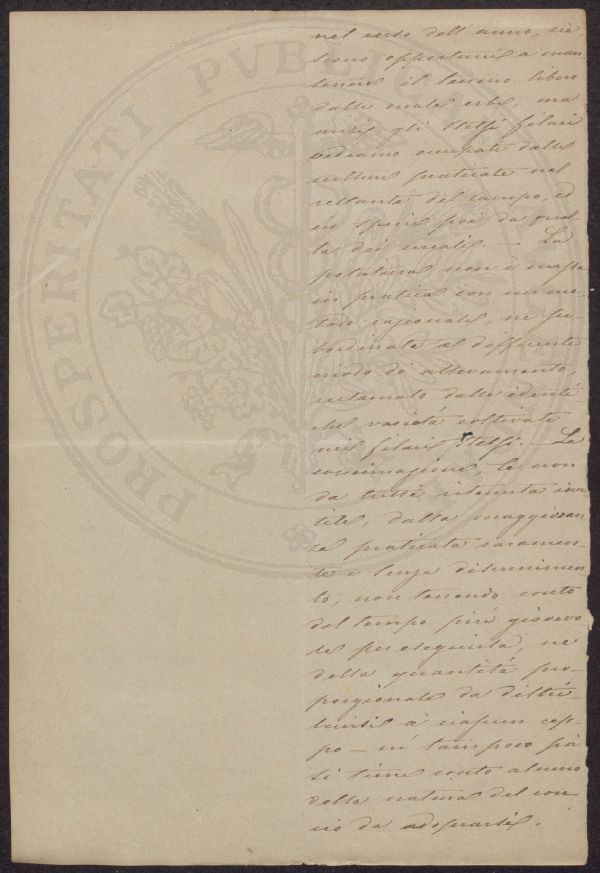 nel corso dell'anno, rie
scono opportuni a man
tenere il terreno libero
dalle male erbe, ma
anzi gli stessi filari
vediamo occupati dalle
culture praticate nel
restante del campo, ed
in specie poi da quel
la dei cereali. — La
potatura non è messa
in pratica con un me-
todo razionale, ne su-
bordinata al differente
modo di allevamento,
reclamato dalle identi
che varietà coltivate
nei filari stessi. — La
concimazione, se non
da tutti ritenuta inu
tile, dalla maggioran
za praticata raramen-
te e senza discernimen
to, non tenendo conto
del tempo più giovevo-
le per eseguirla, ne
della quantità pro-
porzionale da distri-
buirsi a ciascun cep-
po — nè tampoco poi
si tiene conto alcuno
della natura del con-
cio da adoprarsi.
PROSPERITATI PVBLIC